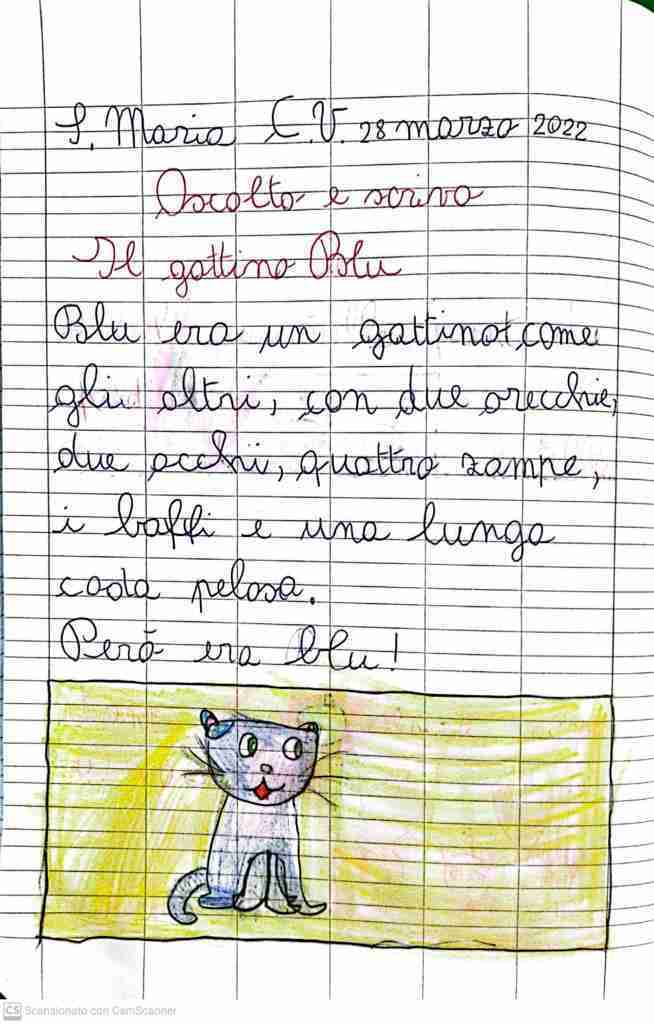 S. Maria C.V. 28 marzo 2022
Ascolto e scrivo
Il gattino Blu
Blu era un gattino come
gli altri, con due orecchie,
due occhi, quattro zampe,
i baffi e una lunga
coda pelosa.
Però era blu!
CS Scansionato con CamScanner